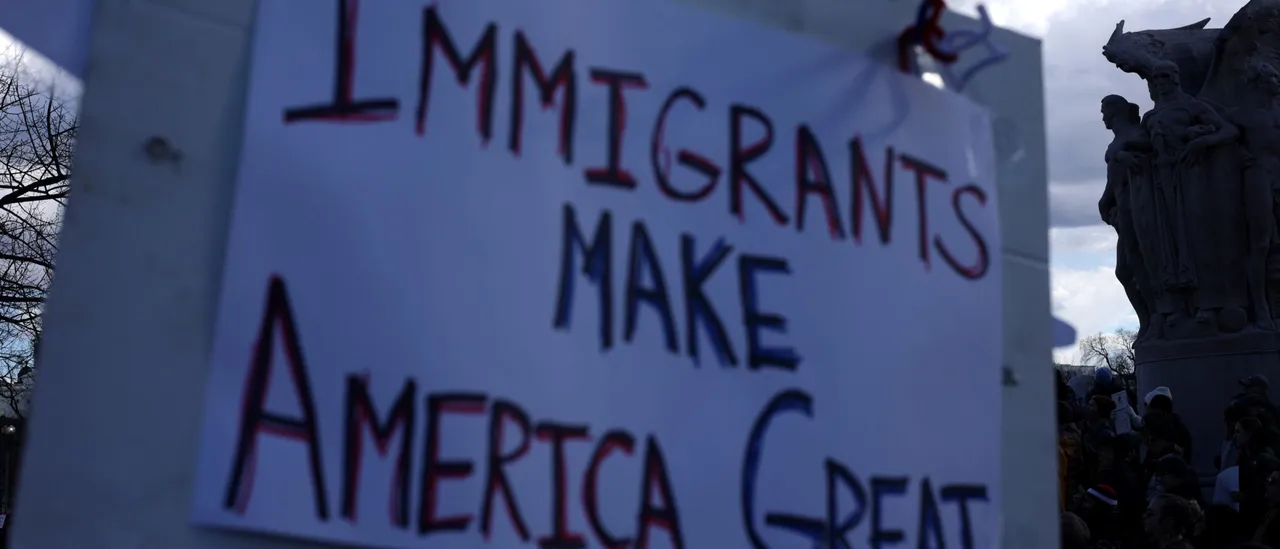 IMMIGRANTS
MAKE
AMERICA GREAT